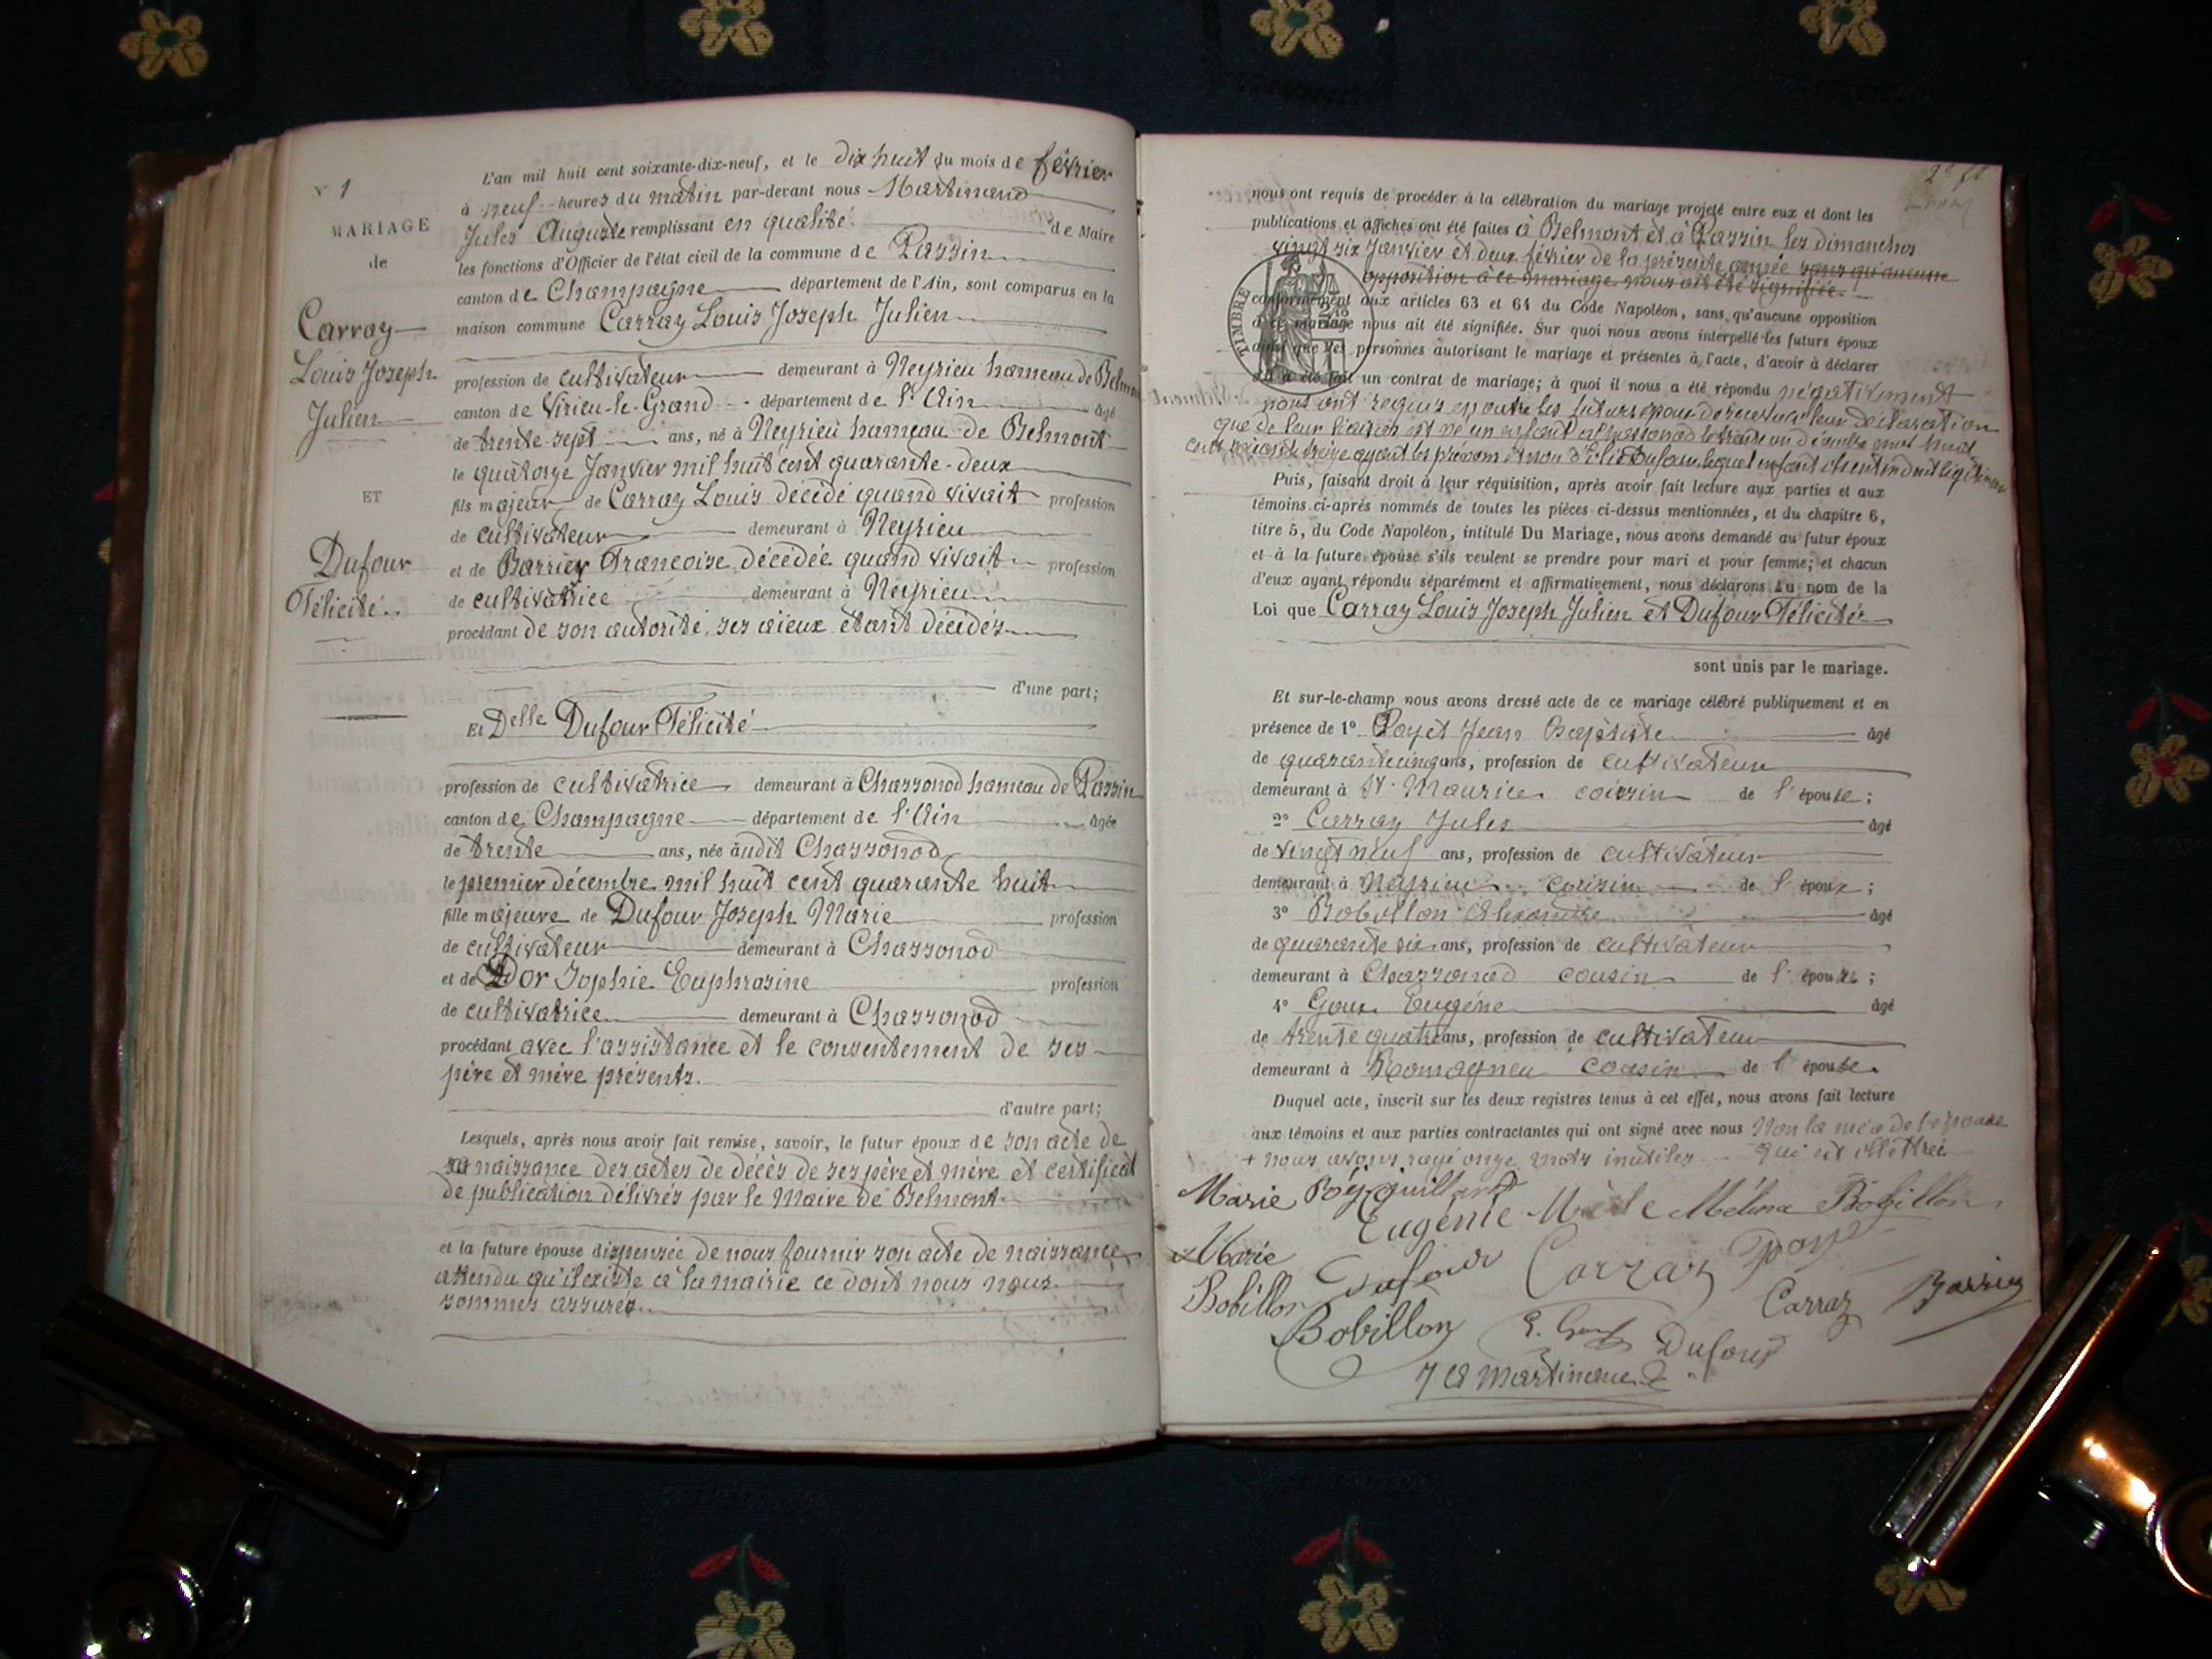 N° 1
MARIAGE
de
Carraz
Louis Joseph
Julien
ET
Dufour
Félicité
L'an mil huit cent soixante-dix-neuf, et le dix huit du mois de février
à neuf heures du matin par-devant nous Martinand
Jules Auguste remplissant en qualité de Maire
les fonctions d'Officier de l'état civil de la commune de Passin
canton de Champagne département de l'Ain, sont comparus en la
maison commune Carraz Louis Joseph Julien
profession de cultivateur demeurant à Neyrieu hameau de Belmont
canton de Virieu-le-Grand département de l'Ain âgé
de trente-sept ans, né à Neyrieu hameau de Belmont
le quatorze Janvier mil huit cent quarante-deux
fils majeur de Carraz Louis décédé quand vivait profession
de cultivateur demeurant à Neyrieu
et de Barriez Françoise décédée quand vivait profession
de cultivatrice demeurant à Neyrieu
procédant de son autorité, ses aïeux étant décédés
d'une part;
Et Delle Dufour Félicité
profession de cultivatrice demeurant à Chassonod hameau de Passin
canton de Champagne département de l'Ain âgée
de trente ans, née audit Chassonod
le premier décembre mil huit cent quarante huit
fille majeure de Dufour Joseph Marie profession
de cultivateur demeurant à Chassonod
et de Dor Sophie Euphrasine profession
de cultivatrice demeurant à Chassonod
procédant avec l'assistance et le consentement de ses
père et mère présents.
d'autre part;
Lesquels, après nous avoir fait remise, savoir, le futur époux de son acte de
naissance des actes de décès de ses père et mère et certificat
de publication délivrés par le Maire de Belmont
et la future épouse dispensée de nous fournir son acte de naissance
attendu qu'il existe à la mairie ce dont nous nous
sommes assurés.
nous ont requis de procéder à la célébration du mariage projeté entre eux et dont les
publications et affiches ont été faites à Belmont et à Passin les dimanches
vingt six janvier et deux février de la présente année sans qu'aucune
opposition à ce mariage nous ait été signifiée.
TIMBRE
conformément aux articles 63 et 64 du Code Napoléon, sans qu'aucune opposition
à ce mariage nous ait été signifiée. Sur quoi nous avons interpellé les futurs époux
ainsi que les personnes autorisant le mariage et présentes à l'acte, d'avoir à déclarer
s'il a été fait un contrat de mariage; à quoi il nous a été répondu négativement
nous ont requis en outre les futurs époux de recevoir leur déclaration
que de leur liaison est né un enfant à Chassonod le trente un décembre mil huit
cent soixante treize ayant les prénom et nom d' Dufour lequel enfant
Puis, faisant droit à leur réquisition, après avoir fait lecture aux parties et aux
témoins ci-après nommés de toutes les pièces ci-dessus mentionnées, et du chapitre 6,
titre 5, du Code Napoléon, intitulé Du Mariage, nous avons demandé au futur époux
et à la future épouse s'ils veulent se prendre pour mari et pour femme; et chacun
d'eux ayant répondu séparément et affirmativement, nous déclarons au nom de la
Loi que Carraz Louis Joseph Julien et Dufour Félicité
sont unis par le mariage.
Et sur-le-champ nous avons dressé acte de ce mariage célébré publiquement et en
présence de 1° Poyet Jean Baptiste âgé
de quarante cinq ans, profession de cultivateur
demeurant à St Maurice cousin de l'épouse;
2° Carraz Jules âgé
de vingt neuf ans, profession de cultivateur
demeurant à Neyrieu cousin de l'époux;
3° Bobillon Alexandre âgé
de quarante six ans, profession de cultivateur
demeurant à Chassonod cousin de l'épouse;
4° Goux Eugène âgé
de trente quatre ans, profession de cultivateur
demeurant à Romagneu cousin de l'épouse.
Duquel acte, inscrit sur les deux registres tenus à cet effet, nous avons fait lecture
aux témoins et aux parties contractantes qui ont signé avec nous non la mère de l'épouse
+ nous avons rayé onze mots inutiles qui est illettrée
Marie
Eugénie Mélina Bobillon
Marie Dufour Carraz
Bobillon Carraz Barriez
Bobillon Dufour
J A Martinand